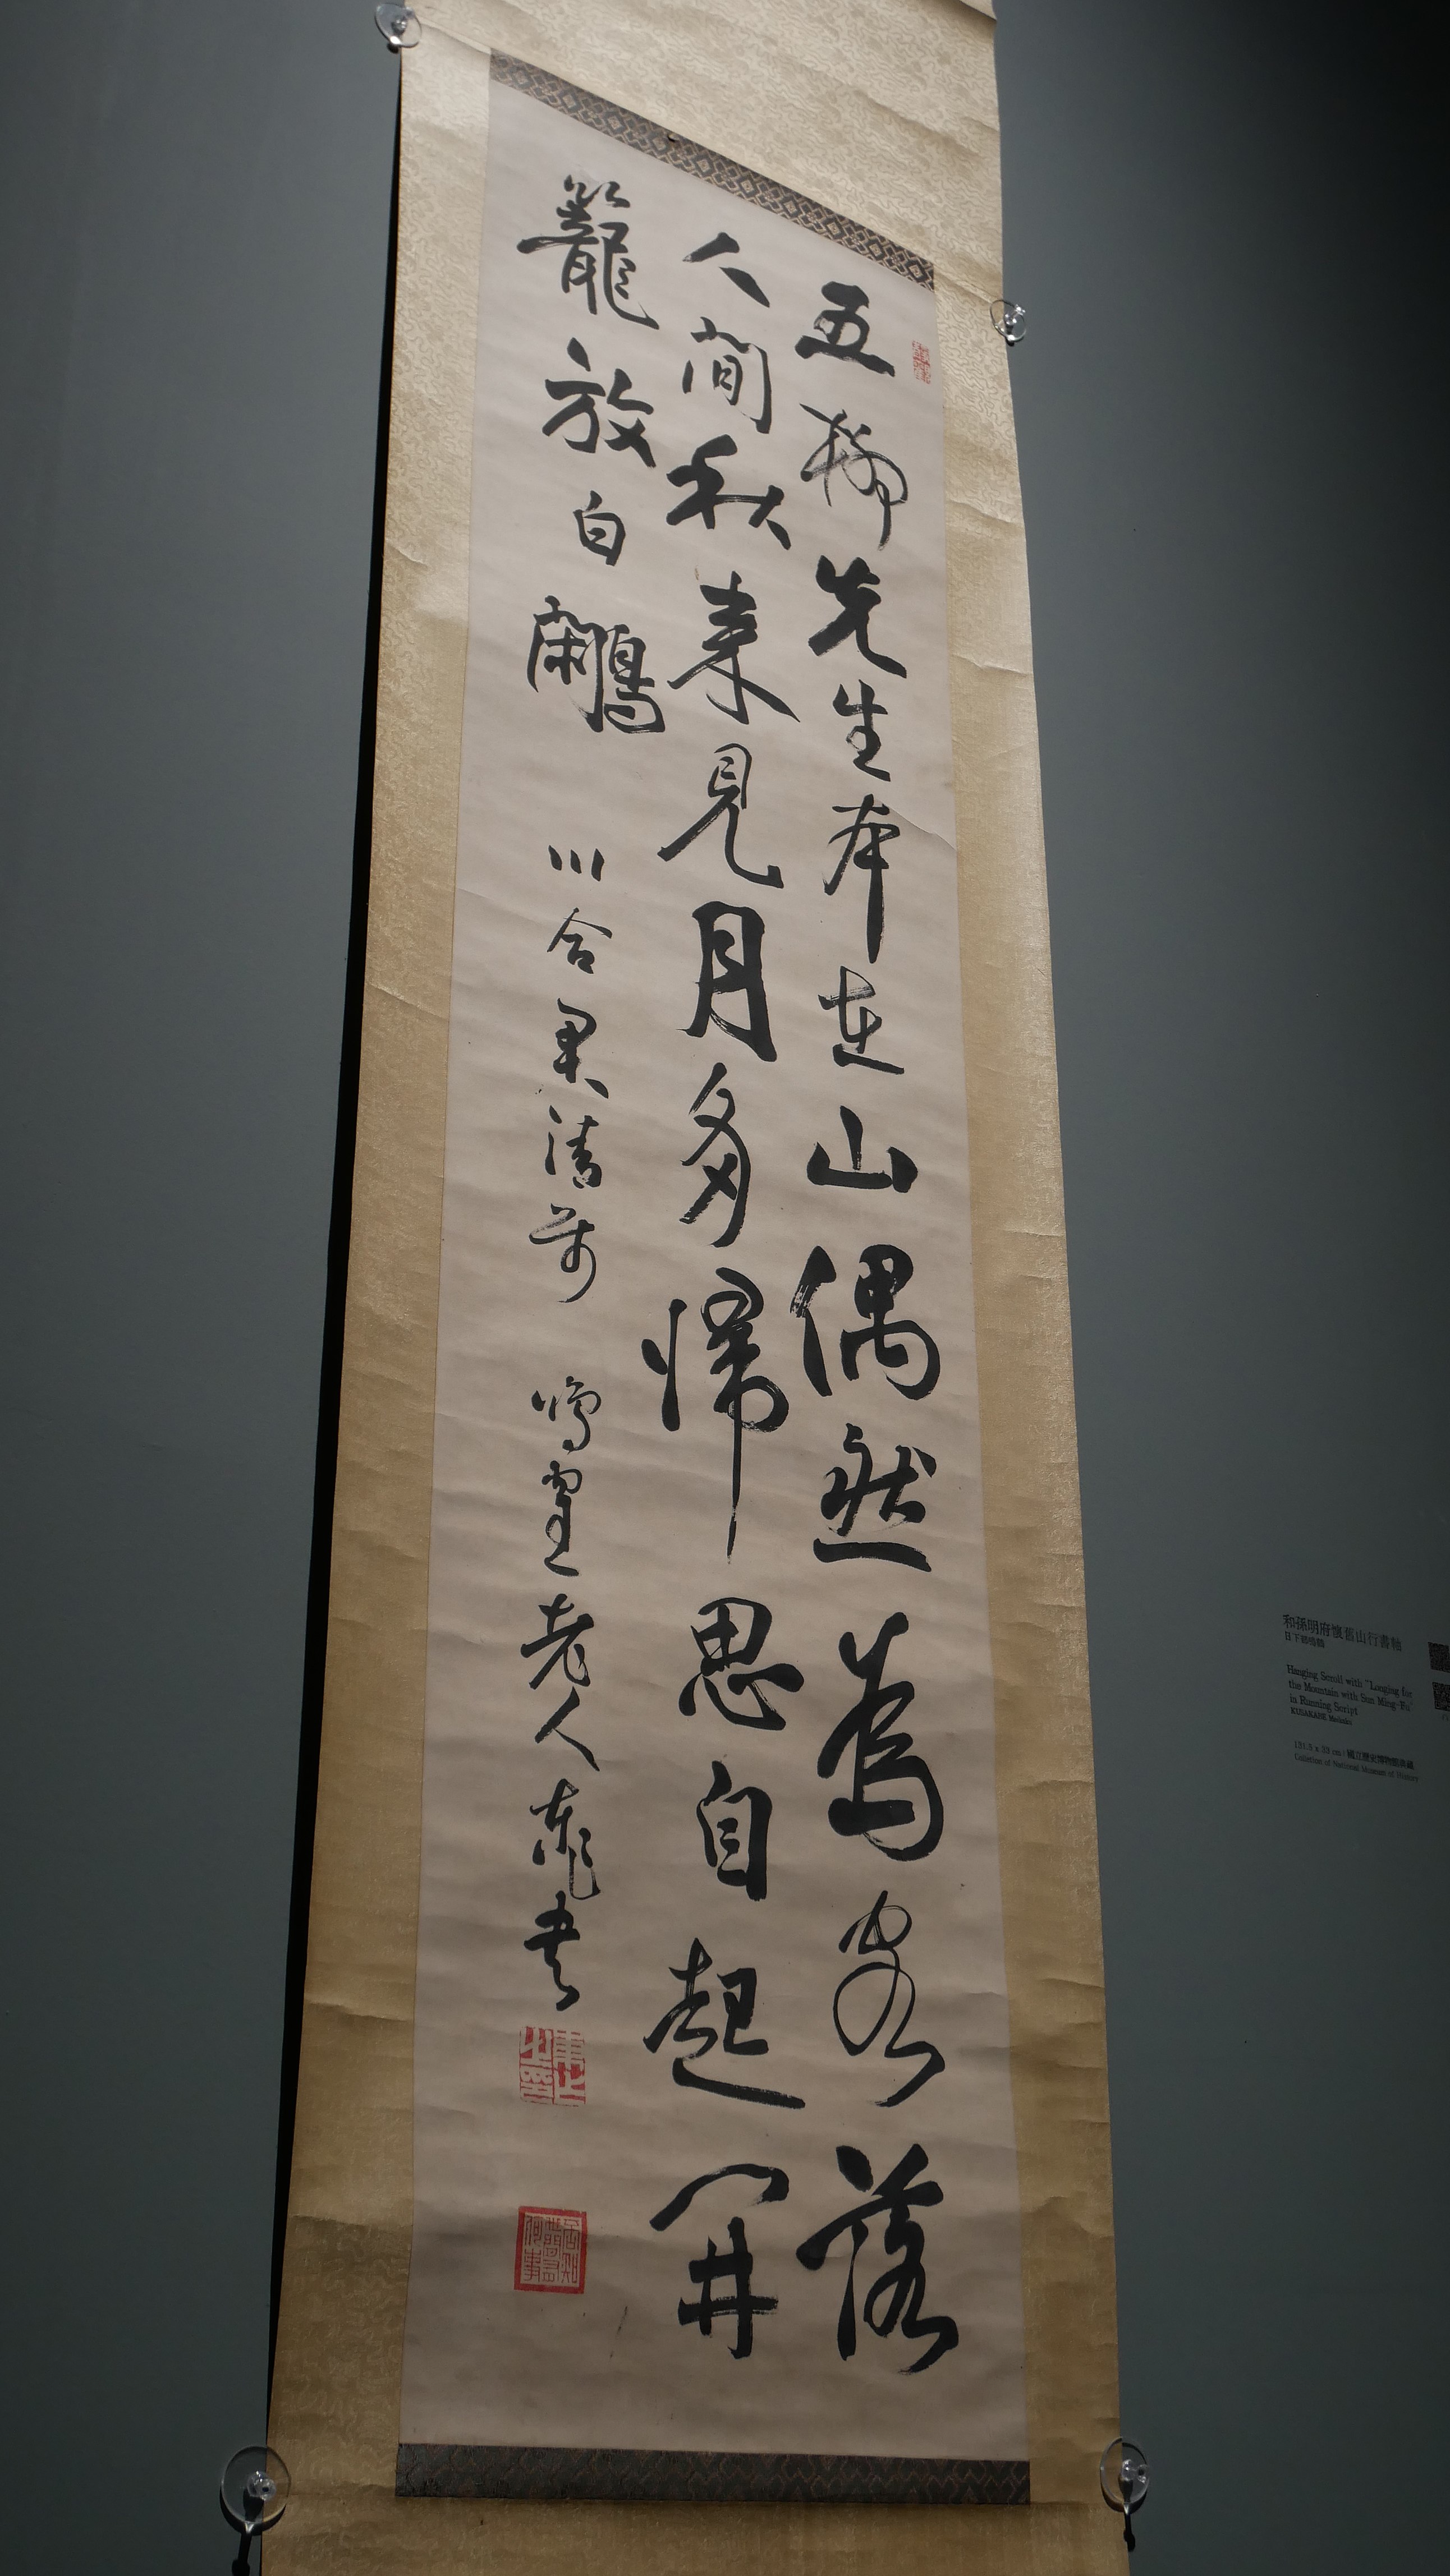 五柳先生本在山偶然為客落
人間秋來見月多歸思自起開
籠放白鷴 川合君清屬 鳴鶴老人東作書
和孫明府懷舊山行書軸
日下部鳴鶴
Hanging Scroll with "Longing for
the Mountain with Sun Ming-Fu"
in Running Script
KUSAKABE Meikaku
cm | 國立歷史博物館典藏
Collection of National Museum of History